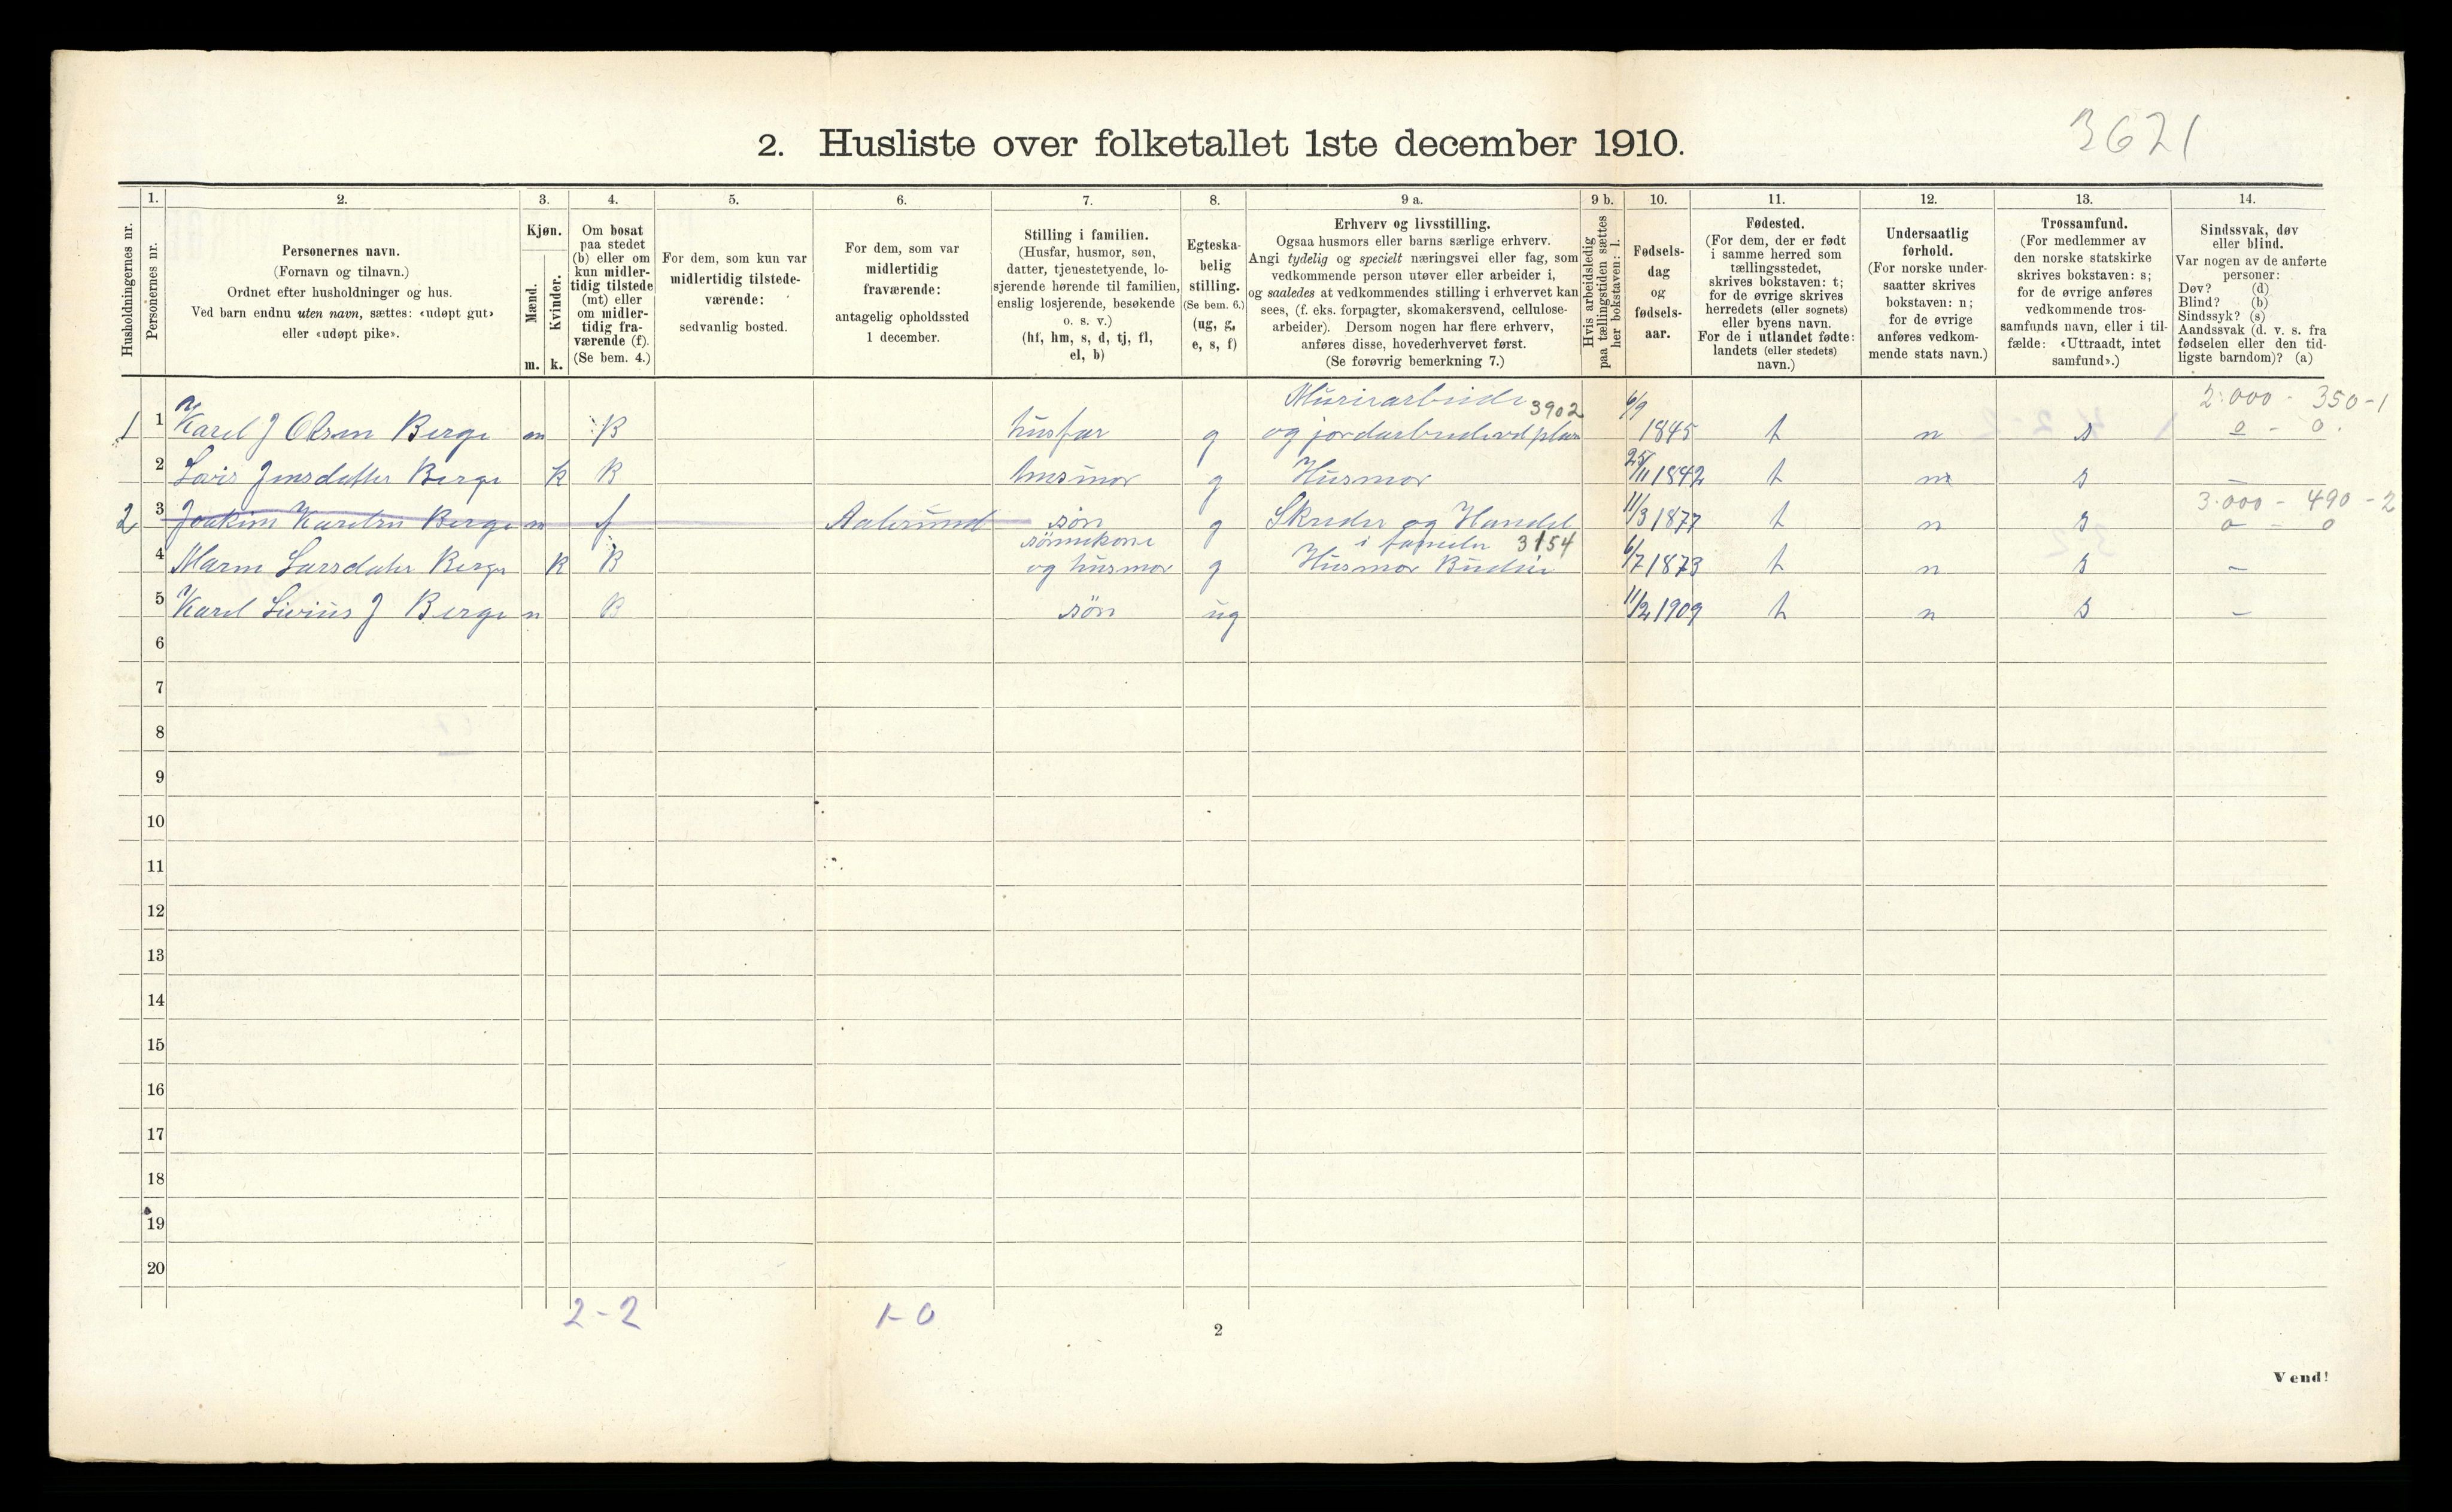 3621
2. Husliste over folketallet 1ste december 1910.
Husholdningernes nr.
1.
Personernes nr.
2.
Personernes navn.
(Fornavn og tilnavn.)
Ordnet efter husholdninger og hus.
Ved barn endnu uten navn, sættes: «udøpt gut»
eller «udøpt pike».
3.
Kjøn.
Mænd.
Kvinder.
m. k.
4.
Om bosat
paa stedet
(b) eller om
kun midler-
tidig tilstede
(mt) eller
om midler-
tidig fra-
værende (f).
(Se bem. 4.)
5.
For dem, som kun var
midlertidig tilstede-
værende:
sedvanlig bosted.
6.
For dem, som var
midlertidig
fraværende:
antagelig opholdssted
1 december.
7.
Stilling i familien.
(Husfar, husmor, søn,
datter, tjenestetyende, lo-
sjerende hørende til familien,
enslig losjerende, besøkende
o. s. v.)
(hf, hm, s, d, tj, fl,
el, b)
8.
Egteska-
belig
stilling.
(Se bem. 6.)
(ug, g,
e, s, f)
9 a.
Erhverv og livsstilling.
Ogsaa husmors eller barns særlige erhverv.
Angi tydelig og specielt næringsvei eller fag, som
vedkommende person utøver eller arbeider i,
og saaledes at vedkommendes stilling i erhvervet kan
sees, (f. eks. forpagter, skomakersvend, cellulose-
arbeider). Dersom nogen har flere erhverv,
anføres disse, hovederhvervet først.
(Se forøvrig bemerkning 7.)
9 b.
Hvis arbeidsledig
paa tællingstiden sættes
her bokstaven: l.
10.
Fødsels-
dag
og
fødsels-
aar.
11.
Fødested.
(For dem, der er født
i samme herred som
tællingsstedet,
skrives bokstaven: t;
for de øvrige skrives
herredets (eller sognets)
eller byens navn.
For de i utlandet fødte:
landets (eller stedets)
navn.)
12.
Undersaatlig
forhold.
(For norske under-
saatter skrives
bokstaven: n;
for de øvrige
anføres vedkom-
mende stats navn.)
13.
Trossamfund.
(For medlemmer av
den norske statskirke
skrives bokstaven: s;
for de øvrige anføres
vedkommende tros-
samfunds navn, eller i til-
fælde: «Uttraadt, intet
samfund».)
14.
Sindssvak, døv
eller blind.
Var nogen av de anførte
personer:
Døv? (d)
Blind? (b)
Sindssyk? (s)
Aandssvak (d. v. s. fra
fødselen eller den tid-
ligste barndom)? (a)
Murerarbeide 3902 6/9 2.000 - 350-1
1 1 Karel J Olsen Berge m B husfar g og jordarbeide 1845 t n s 0 - 0.
2 Jensdatter Berge k B husmor g Husmor 25/11 1842 t n s –
3.000 - 490 - 2
2 3 Joakim Karelsen Berge m f Aalesund søn g Skreder og Handel 11/3 1877 t n s 0 - 0
sønnekone i 3154
4 Larsdatter Berge k B og husmor g Husmor 6/7 1873 t n s –
5 Karel Livius J Berge m B søn ug 11/2 1909 t n s –
6
7
8
9
10
11
12
13
14
15
16
17
18
19
20
2 - 2 1 - 0
2
Vend!